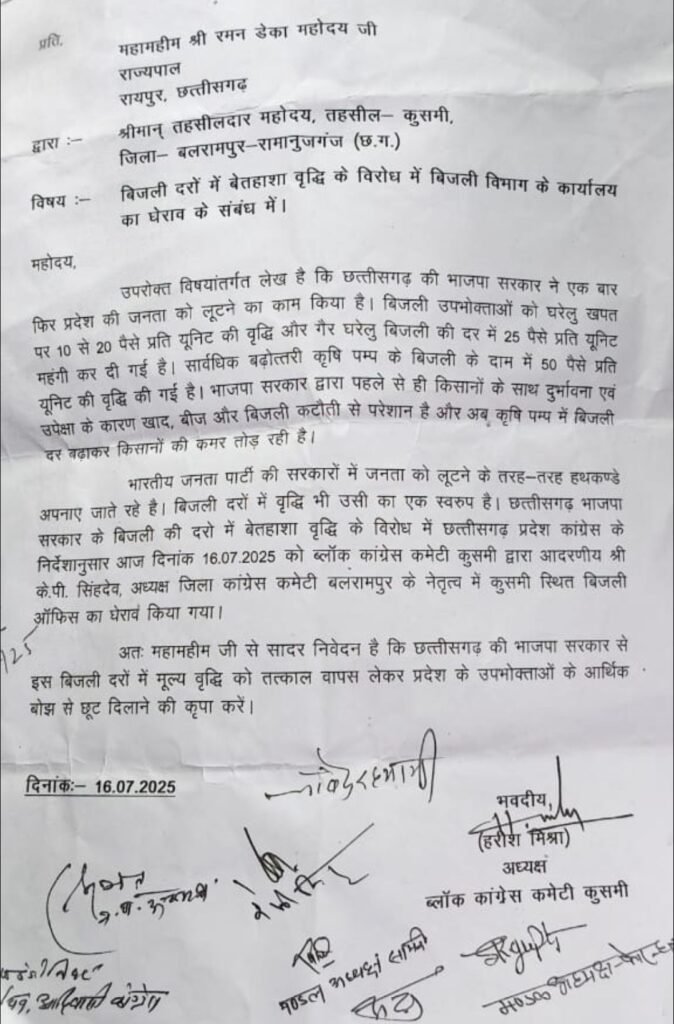 प्रति,
महामहीम श्री रमन डेका महोदय जी
राज्यपाल
रायपुर, छत्तीसगढ़
द्वारा :–
श्रीमान् तहसीलदार महोदय, तहसील– कुसमी,
जिला– बलरामपुर–रामानुजगंज (छ.ग.)
विषय :–
बिजली दरों में बेतहाशा वृद्धि के विरोध में बिजली विभाग के कार्यालय
का घेराव के संबंध में।
महोदय,
उपरोक्त विषयांतर्गत लेख है कि छत्तीसगढ़ की भाजपा सरकार ने एक बार
फिर प्रदेश की जनता को लूटने का काम किया है। बिजली उपभोक्ताओं को घरेलु खपत
पर 10 से 20 पैसे प्रति यूनिट की वृद्धि और गैर घरेलु बिजली की दर में 25 पैसे प्रति यूनिट
महंगी कर दी गई है। सार्वधिक बढ़ोत्तरी कृषि पम्प के बिजली के दाम में 50 पैसे प्रति
यूनिट की वृद्धि की गई है। भाजपा सरकार द्वारा पहले से ही किसानों के साथ दुर्भावना एवं
उपेक्षा के कारण खाद, बीज और बिजली कटौती से परेशान है और अब कृषि पम्प में बिजली
दर बढ़ाकर किसानों की कमर तोड़ रही है।
भारतीय जनता पार्टी की सरकारों में जनता को लूटने के तरह–तरह हथकण्डे
अपनाए जाते रहे है। बिजली दरों में वृद्धि भी उसी का एक स्वरुप है। छत्तीसगढ़ भाजपा
सरकार के बिजली की दरो में बेतहाशा वृद्धि के विरोध में छत्तीसगढ़ प्रदेश कांग्रेस के
निर्देशानुसार आज दिनांक 16.07.2025 को ब्लॉक कांग्रेस कमेटी कुसमी द्वारा आदरणीय श्री
के.पी. सिंहदेव, अध्यक्ष जिला कांग्रेस कमेटी बलरामपुर के नेतृत्व में कुसमी स्थित बिजली
ऑफिस का घेराव किया गया।
अतः महामहीम जी से सादर निवेदन है कि छत्तीसगढ़ की भाजपा सरकार से
इस बिजली दरों में मूल्य वृद्धि को तत्काल वापस लेकर प्रदेश के उपभोक्ताओं के आर्थिक
बोझ से छूट दिलाने की कृपा करें।
दिनांकः– 16.07.2025
भवदीय,
(हरीश मिश्रा)
अध्यक्ष
ब्लॉक कांग्रेस कमेटी कुसमी
मण्डल अध्यक्ष